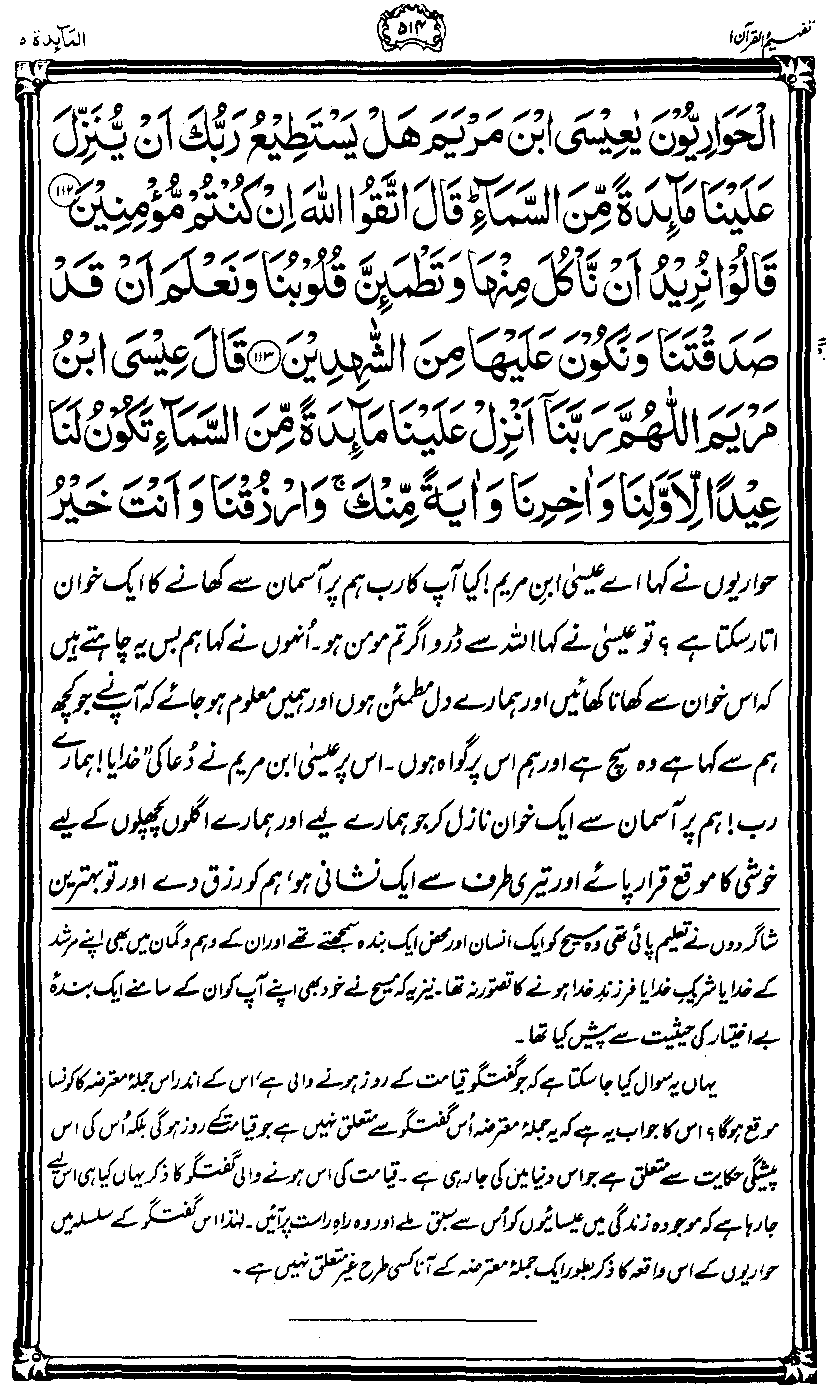 تفہیم القرآن ۱
۵۱۴
المآئدۃ ۵
الْحَوَارِیُّوْنَ یٰعِیْسَی ابْنَ مَرْیَمَ هَلْ یَسْتَطِیْعُ رَبُّكَ اَنْ یُّنَزِّلَ
عَلَیْنَا مَآىِٕدَةً مِّنَ السَّمَآءِؕ قَالَ اتَّقُوا اللّٰهَ اِنْ كُنْتُمْ مُّؤْمِنِیْنَ ﴿۱۱۲﴾
قَالُوْا نُرِیْدُ اَنْ نَّاْكُلَ مِنْهَا وَتَطْمَىِٕنَّ قُلُوْبُنَا وَنَعْلَمَ اَنْ قَدْ
صَدَقْتَنَا وَنَكُوْنَ عَلَیْهَا مِنَ الشّٰهِدِیْنَ ﴿۱۱۳﴾ قَالَ عِیْسَی ابْنُ
مَرْیَمَ اللّٰهُمَّ رَبَّنَاۤ اَنْزِلْ عَلَیْنَا مَآىِٕدَةً مِّنَ السَّمَآءِ تَكُوْنُ لَنَا
عِیْدًا لِّاَوَّلِنَا وَاٰخِرِنَا وَاٰیَةً مِّنْكَ ۚ وَارْزُقْنَا وَاَنْتَ خَیْرُ
حواریوں نے کہا اے عیسیٰ ابنِ مریم! کیا آپ کا رب ہم پر آسمان سے کھانے کا ایک خوان
اتار سکتا ہے ؟ تو عیسیٰ نے کہا اللہ سے ڈرو اگر تم مومن ہو۔ اُنہوں نے کہا ہم بس یہ چاہتے ہیں
کہ اس خوان سے کھانا کھائیں اور ہمارے دل مطمئن ہوں اور ہمیں معلوم ہو جائے کہ آپ نے جو کچھ
ہم سے کہا ہے وہ سچ ہے اور ہم اس پر گواہ ہوں۔ اس پر عیسیٰ ابن مریم نے دُعا کی "خدایا! ہمارے
رب! ہم پر آسمان سے ایک خوان نازل کر جو ہمارے لیے اور ہمارے اگلوں پچھلوں کے لیے
خوشی کا موقع قرار پائے اور تیری طرف سے ایک نشانی ہو، ہم کو رزق دے اور تو بہترین
شاگردوں نے تعلیم پائی تھی وہ مسیح کو ایک انسان اور محض ایک بندہ سمجھتے تھے اور ان کے وہم و گمان میں بھی اپنے مرشد
کے خدا یا شریکِ خدا یا فرزندِ خدا ہونے کا تصور نہ تھا۔ نیز یہ کہ مسیح نے خود بھی اپنے آپ کو ان کے سامنے ایک بندۂ
بے اختیار کی حیثیت سے پیش کیا تھا۔
یہاں یہ سوال کیا جا سکتا ہے کہ جو گفتگو قیامت کے روز ہونے والی ہے، اس کے اندر اس جملۂ معترضہ کا کونسا
موقع ہوگا؟ اس کا جواب یہ ہے کہ یہ جملۂ معترضہ اُس گفتگو سے متعلق نہیں ہے جو قیامت کے روز ہوگی بلکہ اُس کی اس
پیشگی حکایت سے متعلق ہے جو اس دنیا میں کی جا رہی ہے۔ قیامت کی اس ہونے والی گفتگو کا ذکر یہاں کیا ہی اس لیے
جا رہا ہے کہ موجودہ زندگی میں عیسائیوں کو اُس سے سبق ملے اور وہ راہِ راست پر آئیں۔ لہٰذا اس گفتگو کے سلسلہ میں
حواریوں کے اس واقعہ کا ذکر بطور ایک جملۂ معترضہ کے آنا کسی طرح غیر متعلق نہیں ہے۔